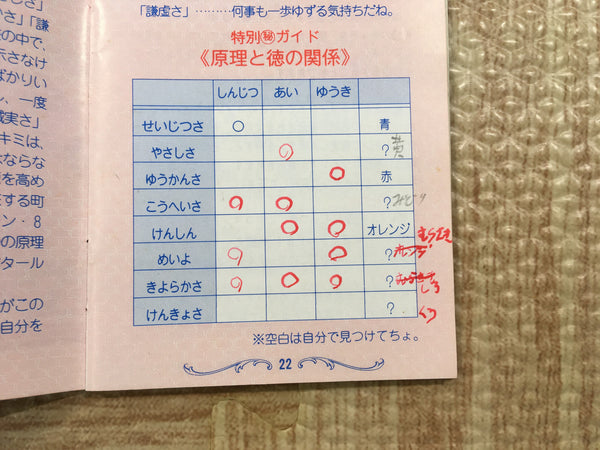 しさ」
」「謙
の中で、
示さなけ
ばかりい
し、一度
誠実さ」
キミは、
ならな
を高め
する町
ン・8
の原理
タール
がこの
自分を
「謙虚さ」………何事も一歩ゆずる気持ちだね。
特別㊙ガイド
《原理と徳の関係》
しんじつ あい ゆうき
せいじつさ ○ 青
やさしさ ○ ? 黄
ゆうかんさ ○ 赤
こうへいさ ○ ○ ? みどり
けんしん ○ ○ オレンジ むらさき
めいよ ○ ○ ? オレンジ
きよらかさ ○ ○ ○ ? しろ
けんきょさ ? くろ
※空白は自分で見つけてちょ。
22